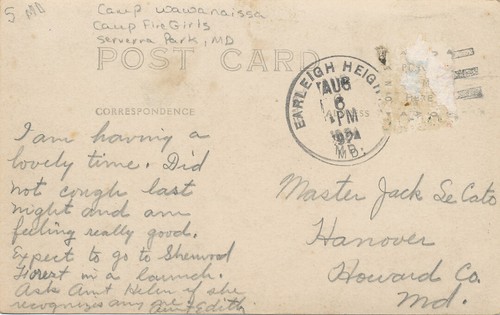 5 MD
Camp Wawanaissa
Camp Fire Girls
Serverna Park, MD
POST CARD
CORRESPONDENCE
I am having a
lovely time. Did
not cough last
night and am
feeling really good.
Expect to go to Sherwood
Forest in a launch.
Ask Aunt Helen if she
recognizes any one.
Aunt Edith.
EARLEIGH HEIGH
AUG
6
PM
MD.
HERE
Master Jack Le Cato
Hanover
Howard Co.
Md.